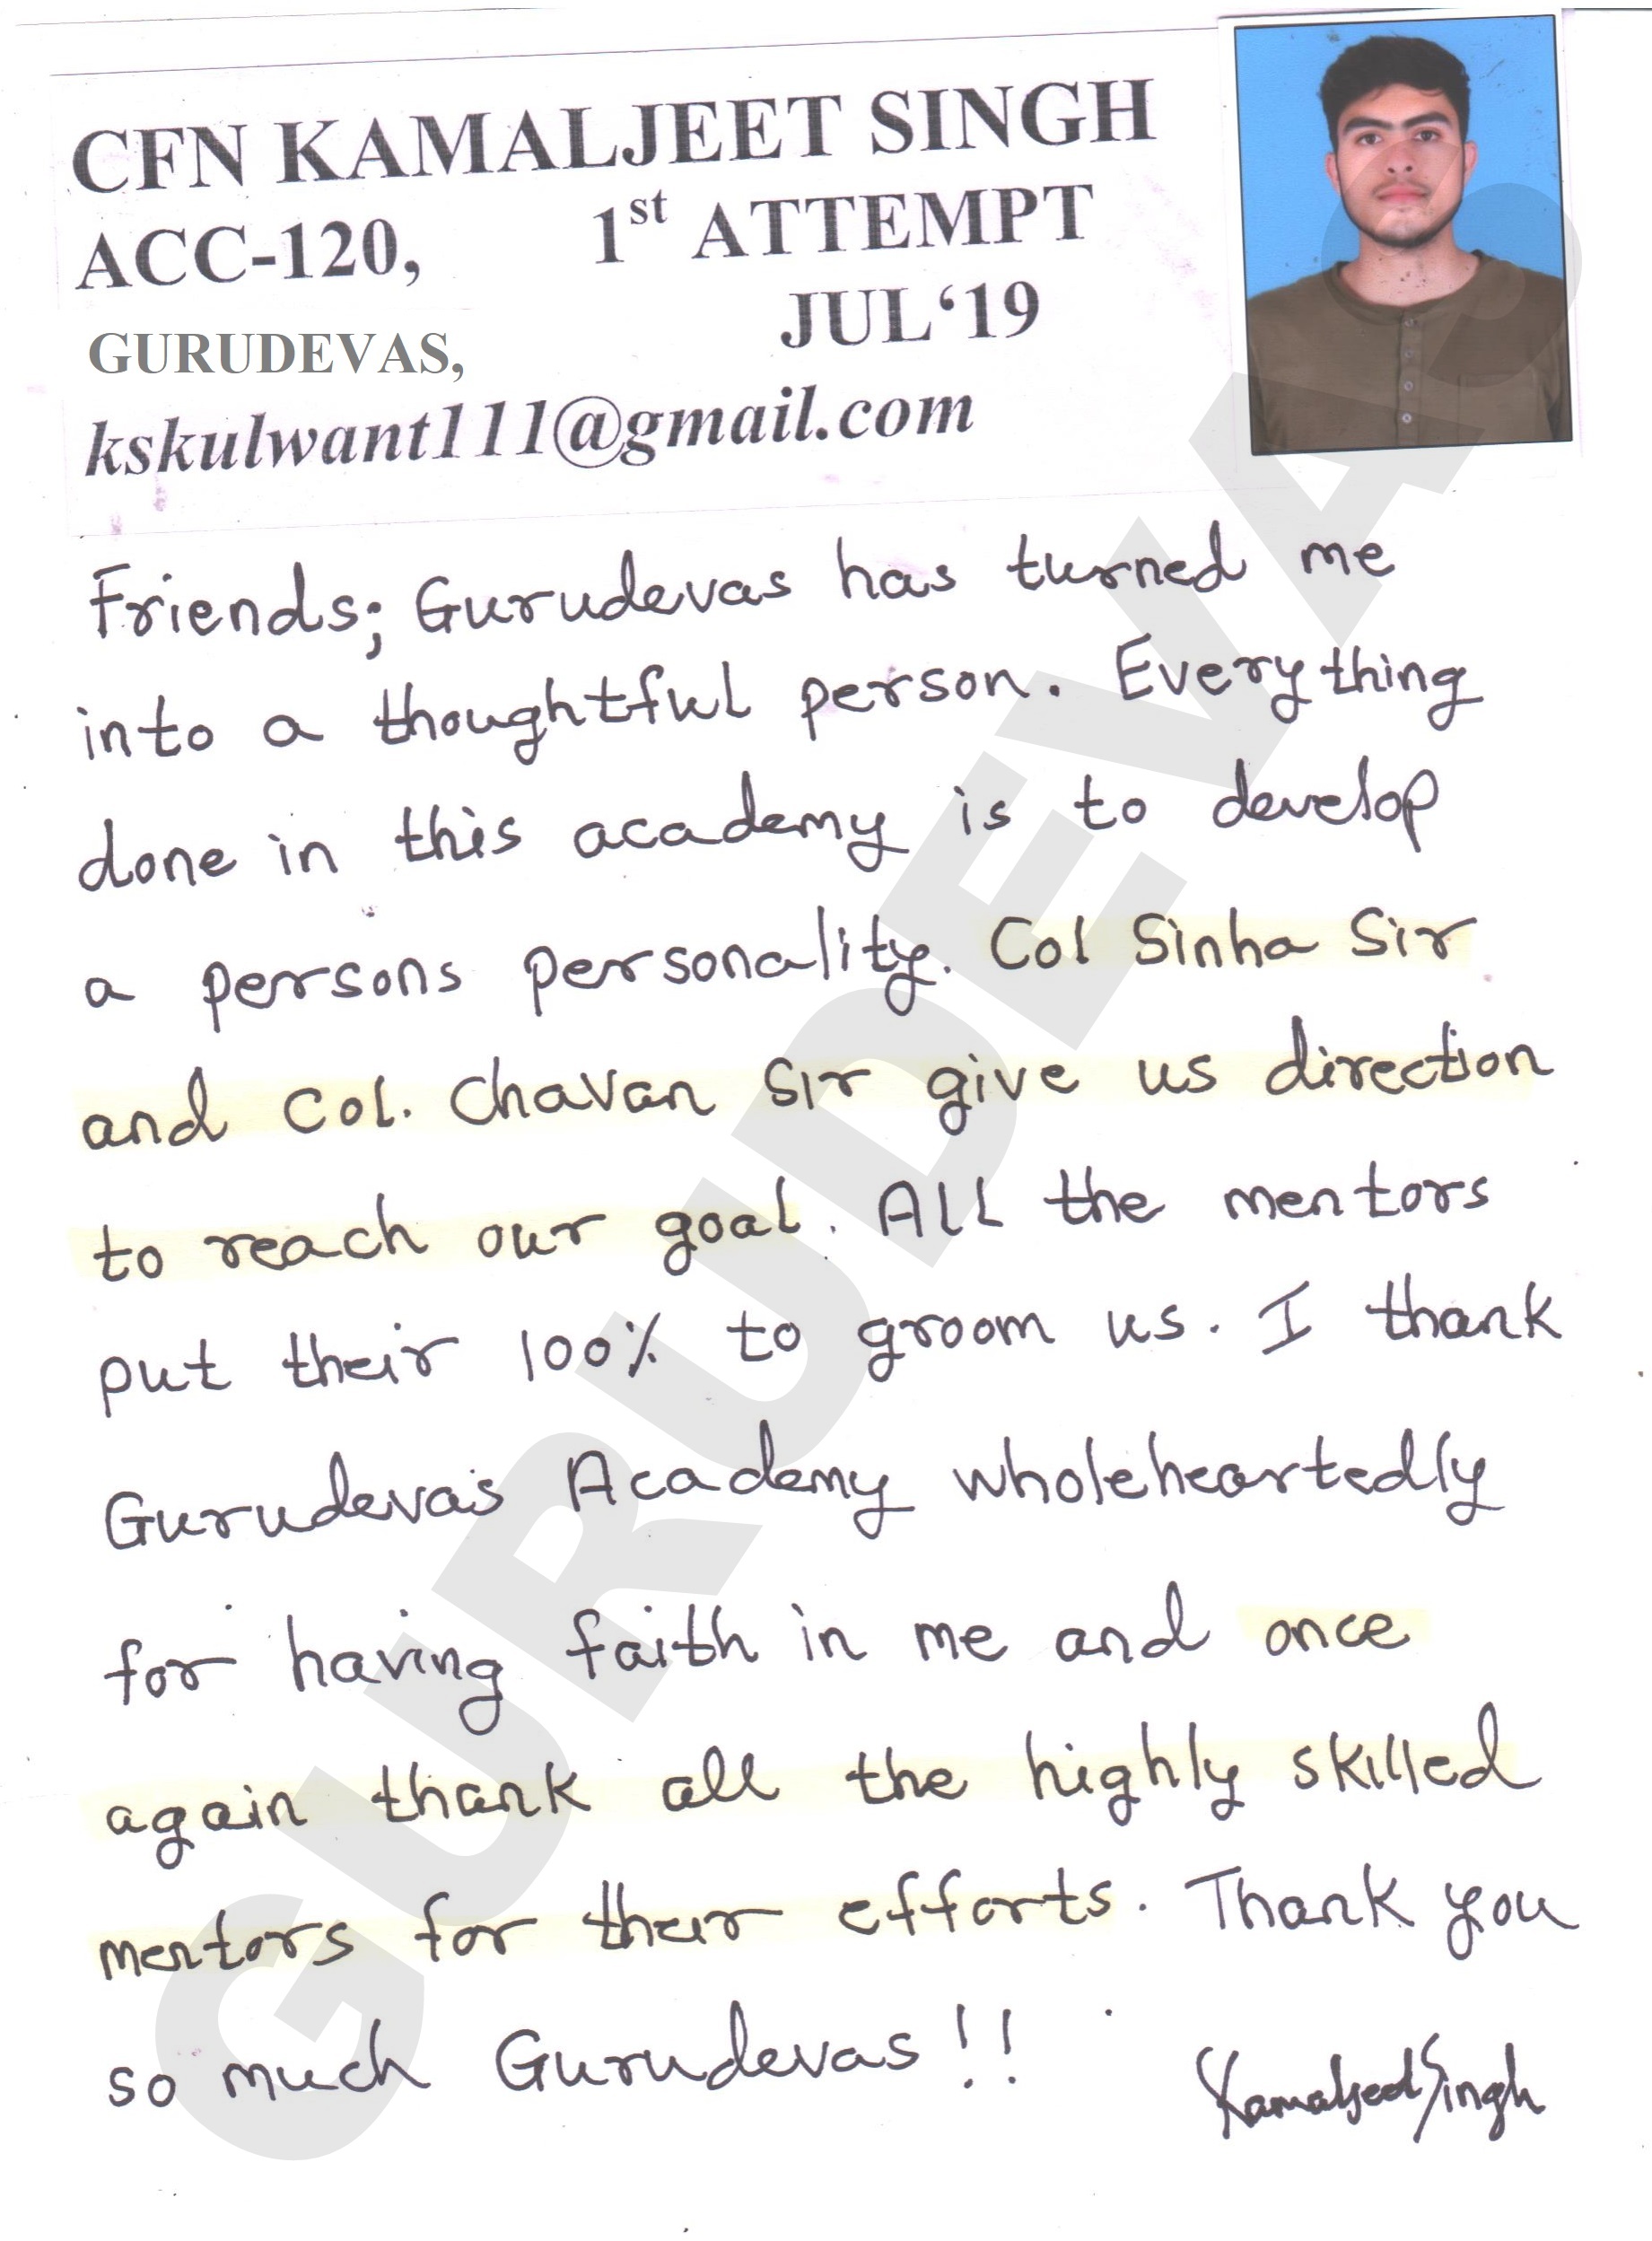 CFN KAMALJEET SINGH
ACC-120, 1st ATTEMPT
JUL‘19
GURUDEVAS,
kskulwant111@gmail.com
Friends; Gurudevas has turned me
into a thoughtful person. Everything
done in this academy is to develop
a persons personality. Col Sinha Sir
and Col. Chavan Sir give us direction
to reach our goal. All the mentors
put their 100% to groom us. I thank
Gurudevas Academy wholeheartedly
for having faith in me and once
again thank all the highly skilled
mentors for their efforts. Thank you
so much Gurudevas!!
Kamaljeet Singh
GURUDEVAS